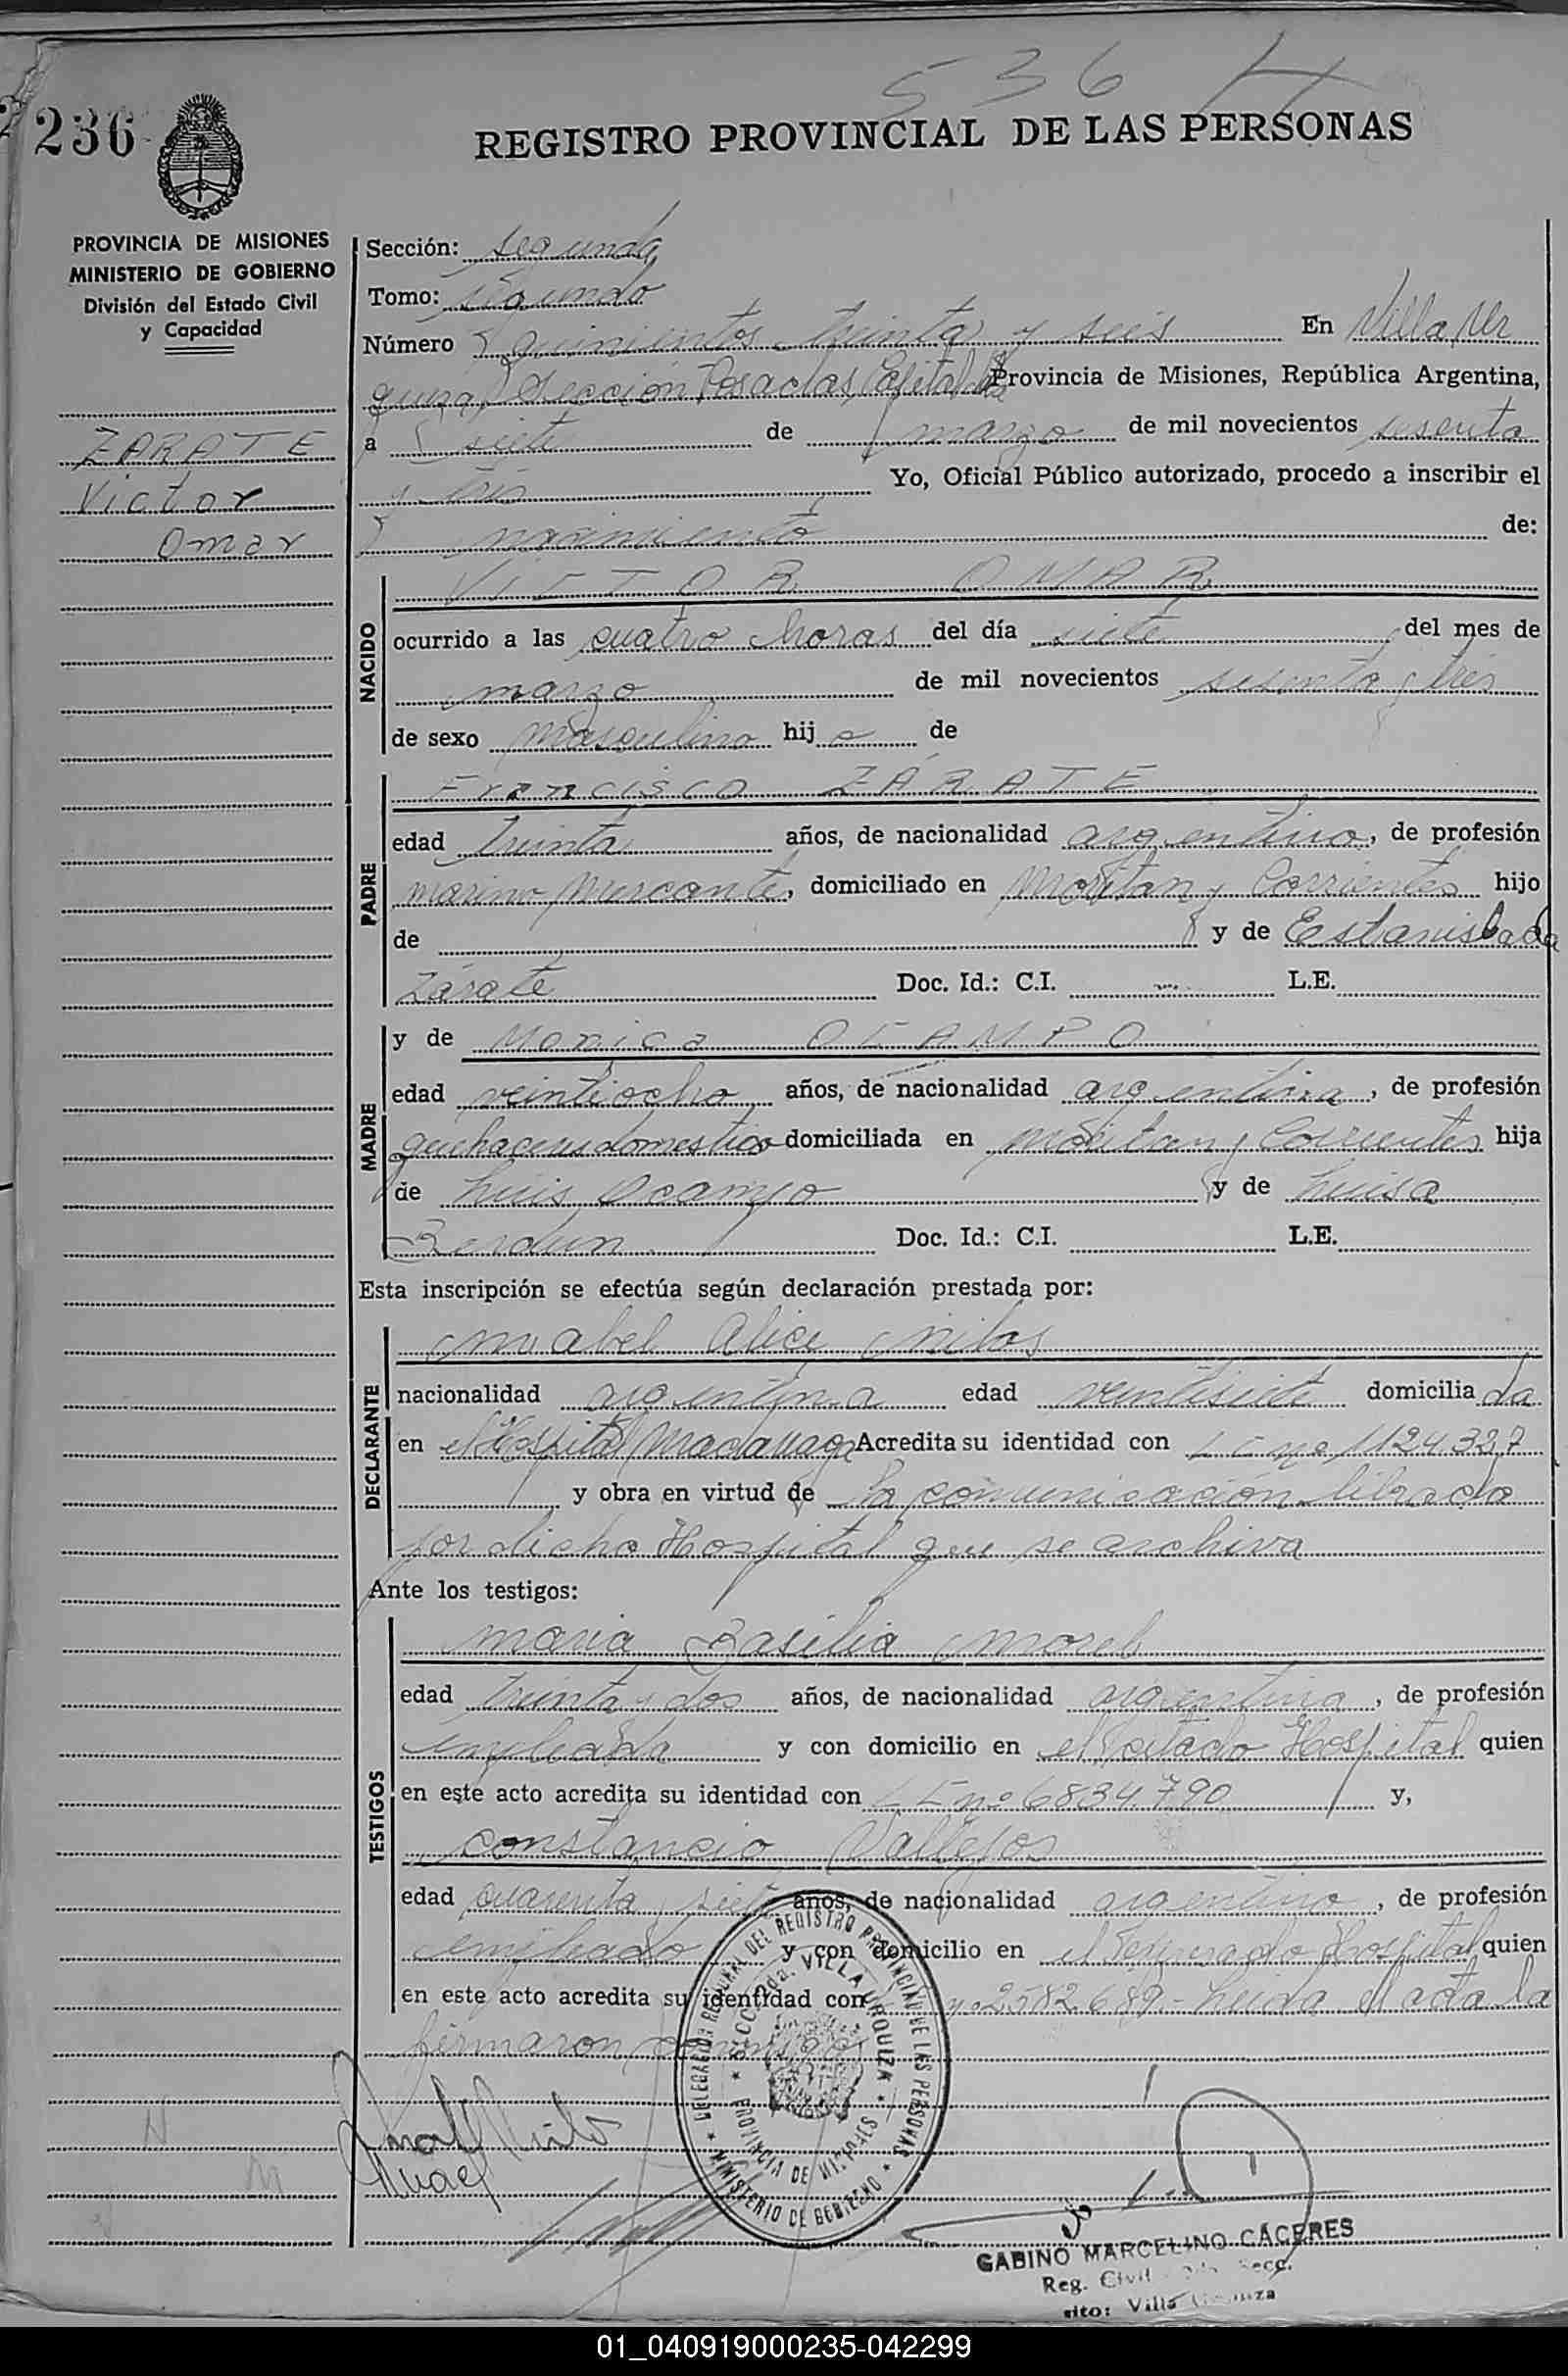 536
236
REGISTRO PROVINCIAL DE LAS PERSONAS
PROVINCIA DE MISIONES
MINISTERIO DE GOBIERNO
División del Estado Civil
y Capacidad
ZARATE
Victor
Omar
Sección: segunda
Tomo: segundo
Número quinientos treinta y seis En Villa Ur
quiza, Sección, Posadas, Capital de Provincia de Misiones, República Argentina,
a siete de marzo de mil novecientos sesenta
y tres Yo, Oficial Público autorizado, procedo a inscribir el
nacimiento de:
NACIDO
VICTOR OMAR
ocurrido a las cuatro horas del día siete del mes de
marzo de mil novecientos sesenta y tres
de sexo masculino hijo de
PADRE
Francisco ZÁRATE
edad treinta años, de nacionalidad argentino, de profesión
marino mercante, domiciliado en y Corrientes hijo
de y de Estanislada
Zárate Doc. Id.: C.I. L.E.
MADRE
y de Monica OCAMPO
edad veintiocho años, de nacionalidad argentina, de profesión
quehaceres domestico domiciliada en y Corrientes hija
de Luis Ocampo y de Luisa
Berdun Doc. Id.: C.I. L.E.
Esta inscripción se efectúa según declaración prestada por:
DECLARANTE
Mabel Alice Milos
nacionalidad argentina edad veintisiete domiciliada
en el Hospital Madariaga Acredita su identidad con L C nº 1124.327
y obra en virtud de la comunicación librada
por dicho Hospital que se archiva
Ante los testigos:
TESTIGOS
Maria Basilia Morel
edad treinta y dos años, de nacionalidad argentina, de profesión
empleada y con domicilio en el citado Hospital quien
en este acto acredita su identidad con nº 6834.790 y,
Constancio Vallejos
edad cuarenta y siete años, de nacionalidad argentino, de profesión
empleado y con domicilio en el expresado Hospital quien
en este acto acredita su identidad con nº 2582.689.- Leida el acta la
firmaron conmigo
DELEGACION REGIONAL DEL REGISTRO PROVINCIAL DE LAS PERSONAS
MINISTERIO DE GOBIERNO
SECC. 2da. VILLA URQUIZA
PROVINCIA DE MISIONES
GABINO MARCELINO CACERES
Reg. Civil Secc.
Villa
01_040919000235-042299